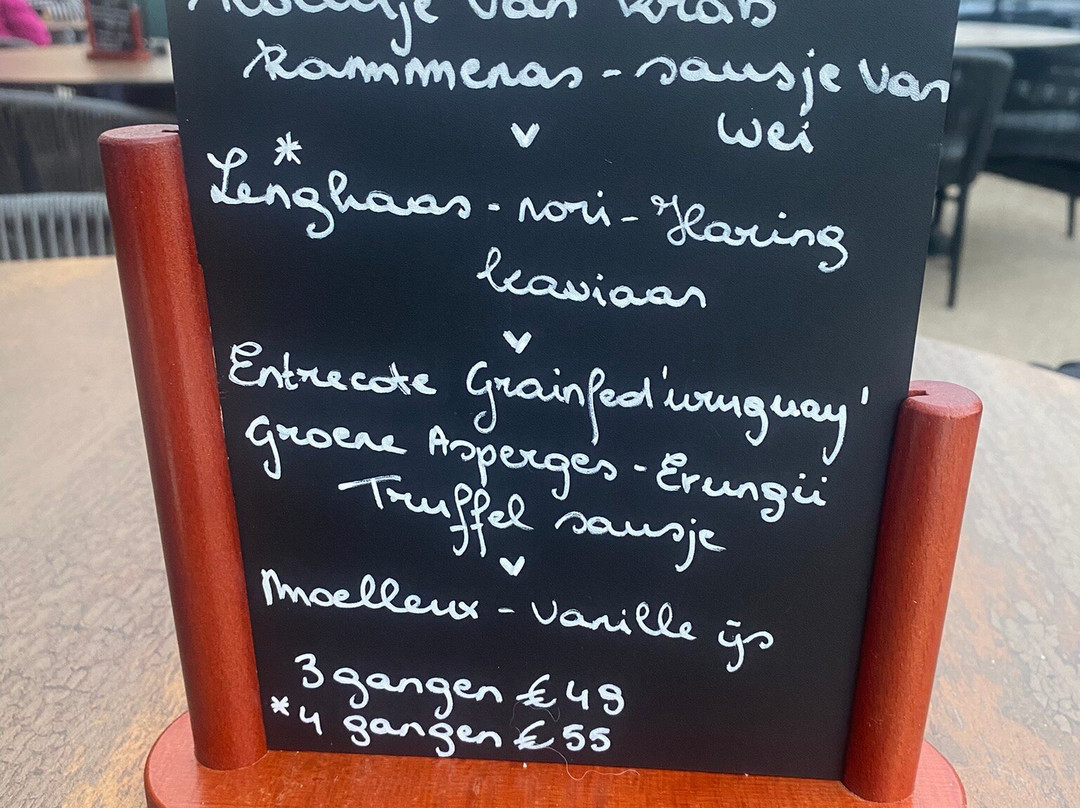 van krab
Rammenas - sausje van
wei
*
Lenghaas - nori - Haring
kaviaar
Entrecote Grainfed 'uruguay'
groene Asperges - Erungii
Truffel sausje
Moelleux - Vanille ijs
3 gangen € 49
*4 gangen € 55